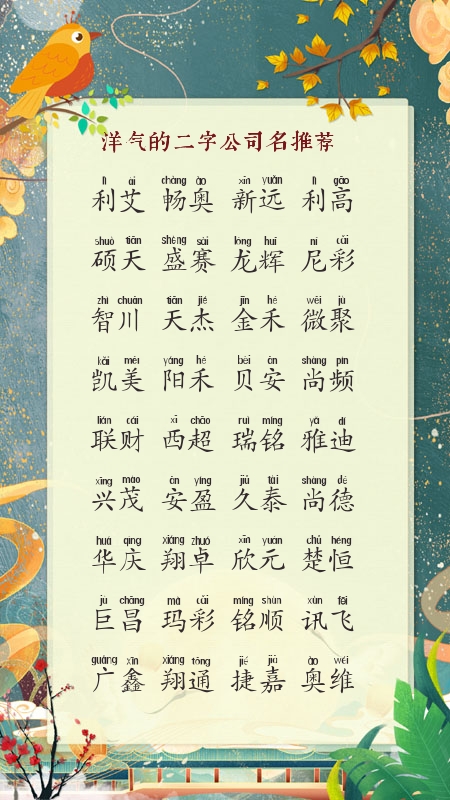 洋气的二字公司名推荐
lì ài chàng ào xīn yuǎn lì gāo
利艾 畅奥 新远 利高
shuò tiān shèng sài lóng huī ní cǎi
硕天 盛赛 龙辉 尼彩
zhì chuān tiān jié jīn hé wēi jù
智川 天杰 金禾 微聚
kǎi měi yáng hé bèi ān shàng pín
凯美 阳禾 贝安 尚频
lián cái xī chāo ruì míng yǎ dí
联财 西超 瑞铭 雅迪
xīng mào ān yíng jiǔ tài shàng dé
兴茂 安盈 久泰 尚德
huá qìng xiáng zhuó xīn yuán chǔ héng
华庆 翔卓 欣元 楚恒
jù chāng mǎ cǎi míng shùn xùn fēi
巨昌 玛彩 铭顺 讯飞
guǎng xīn xiáng tōng jié jiā ào wéi
广鑫 翔通 捷嘉 奥维